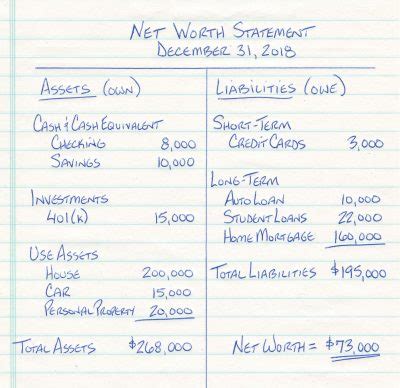 NET WORTH STATEMENT
DECEMBER 31, 2018
ASSETS (OWN)
CASH & CASH EQUIVALENT
CHECKING 8,000
SAVINGS 10,000
INVESTMENTS
401(K) 15,000
USE ASSETS
HOUSE 200,000
CAR 15,000
PERSONAL PROPERTY 20,000
TOTAL ASSETS $268,000
LIABILITIES (OWE)
SHORT-TERM
CREDIT CARDS 3,000
LONG-TERM
AUTO LOAN 10,000
STUDENT LOANS 22,000
HOME MORTGAGE 160,000
TOTAL LIABILITIES $195,000
NET WORTH = $73,000